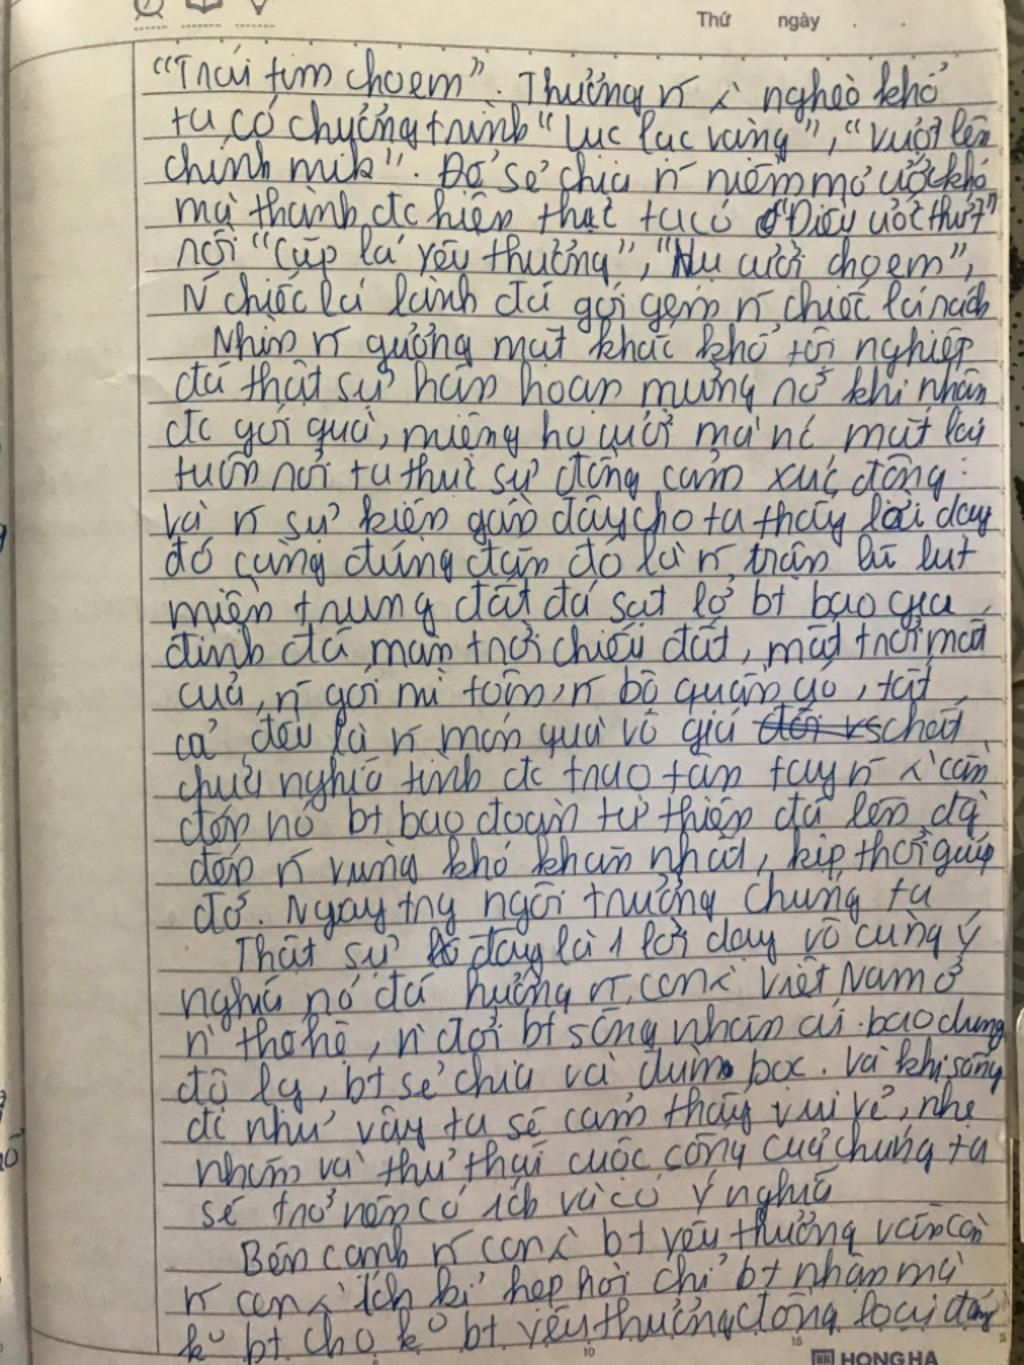 Thứ ngày . .
"Trái tim cho em". Thương n~ ng` nghèo khổ
ta có chương trình "Lục lạc vàng", "Vượt lên
chính mik". Để sẻ chia n~ niềm mơ ước khó
mà thành đc hiện thực ta có "Điều ước thứ 7"
rồi "Cặp lá yêu thương", "Nụ cười cho em",
N~ chiếc lá lành đã gói gém n~ chiếc lá rách
Nhìn n~ gương mặt khắc khổ tội nghiệp
đã thật sự hân hoan mừng rỡ khi nhận
đc gói quà, miệng họ cười mà nc mắt lại
tuôn rơi ta thực sự đồng cảm xúc động.
và n~ sự kiện gần đây cho ta thấy lời dạy
đó càng đúng đắn đó là n~ trận lũ lụt
miền trung đất đá sạt lở bt bao gia
đình đã màn trời chiếu đất, mất trời mất
của, n~ gói mì tôm, n~ bộ quần áo, tất
cả đều là n~ món quà vô giá chất
chứa nghĩa tình đc trao tận tay n~ ng` cần
đến nó bt bao đoàn từ thiện đã lên đg
đến n~ vùng khó khăn nhất, kịp thời giúp
đỡ. Ngay trg ngôi trường chúng ta
Thật sự đây là 1 lời dạy vô cùng ý
nghĩa nó đã hướng n~ con ng` Việt Nam ở
n` thế hệ, n` đời bt sống nhân ái. bao dung
độ lg, bt sẻ chia và đùm bọc. Và khi sống
đc như vậy ta sẽ cảm thấy vui vẻ, nhẹ
nhõm và thư thái cuộc cống của chúng ta
sẽ trở nên có ích và có ý nghĩa
Bên cạnh n~ con ng` bt yêu thương vẫn còn
n~ con ng` ích kỉ hẹp hòi chỉ bt nhận mà
ko bt cho ko bt yêu thương đồng loại đáng
HONG HA